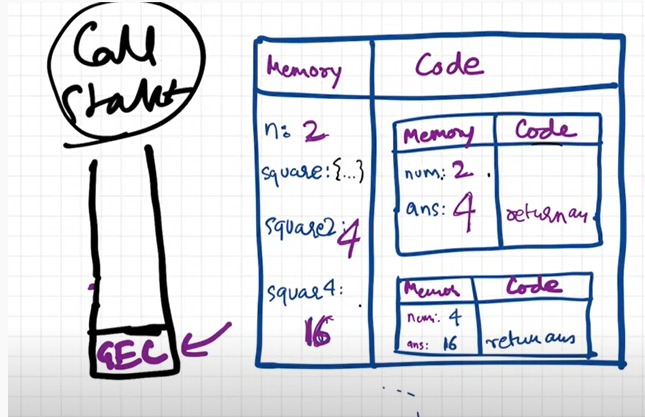 Call
Stakt
GEC
Memory Code
n: 2
square: {...}
square2: 4
squar4:
16
Memory Code
num: 2
ans: 4 return an
Memor Code
num: 4
ans: 16 return ans